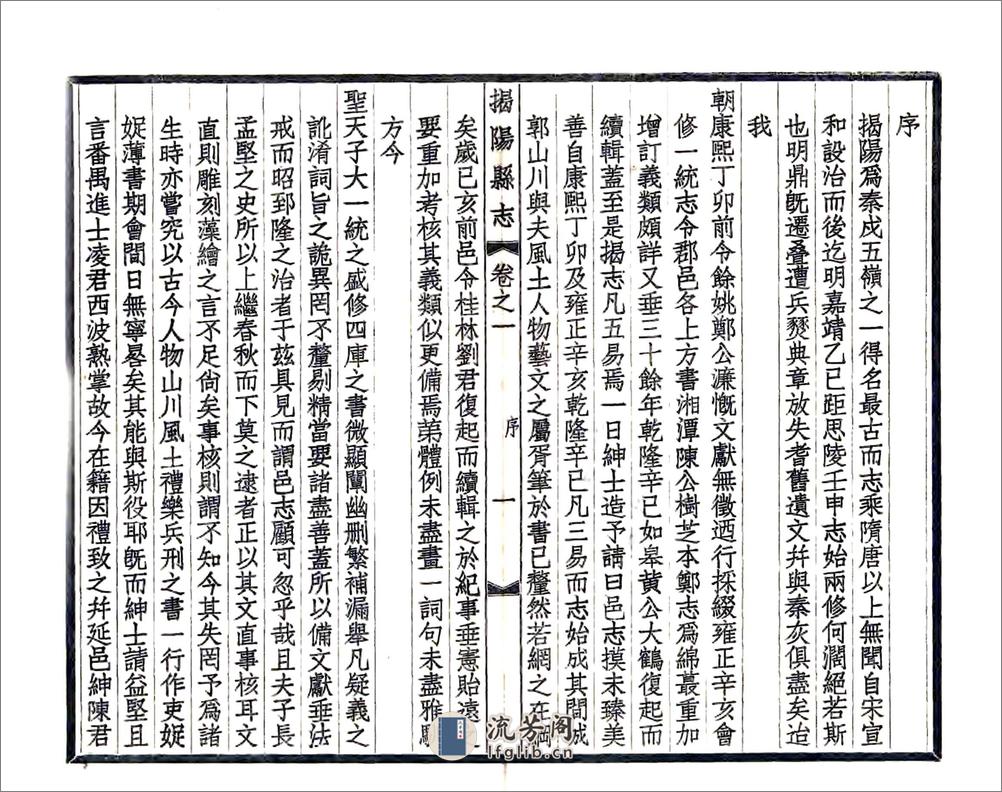 序
揭陽爲秦戍五嶺之一得名最古而志乘隋唐以上無聞自宋宣
和設治而後迄明嘉靖乙巳距思陵壬申志始兩修何濶絕若斯
也明鼎旣遷叠遭兵燹典章放失耆舊遺文幷與秦灰俱盡矣迨
我
朝康熙丁卯前令餘姚鄭公濂慨文獻無徵迺行採綴雍正辛亥會
修一統志令郡邑各上方書湘潭陳公樹芝本鄭志爲綿蕞重加
增訂義類頗詳又垂三十餘年乾隆辛巳如皋黃公大鶴復起而
續輯蓋至是揭志凡五易焉一日紳士造予請曰邑志摸未臻美
善自康熙丁卯及雍正辛亥乾隆辛巳凡三易而志始成其間城
郭山川與夫風土人物藝文之屬胥筆於書已釐然若網之在綱
揭陽縣志
卷之一
序
一
矣歲已亥前邑令桂林劉君復起而續輯之於紀事垂憲貽遠
要重加考核其義類似更備焉苐體例未盡畫一詞句未盡雅
方今
聖天子大一統之盛修四庫之書微顯闡幽删繁補漏舉凡疑義之
訛淆詞旨之詭異罔不釐剔精當要諸盡善蓋所以備文獻垂法
戒而昭郅隆之治者于兹具見而謂邑志顧可忽乎哉且夫子長
孟堅之史所以上繼春秋而下莫之逮者正以其文直事核耳文
直則雕刻藻繪之言不足尙矣事核則謂不知今其失罔予爲諸
生時亦嘗究以古今人物山川風土禮樂兵刑之書一行作吏娖
娖薄書期會間日無寧晷矣其能與斯役耶旣而紳士請益堅且
言番禺進士凌君西波熟掌故今在籍因禮致之幷延邑紳陳君
流芳阁
lfglib.cn